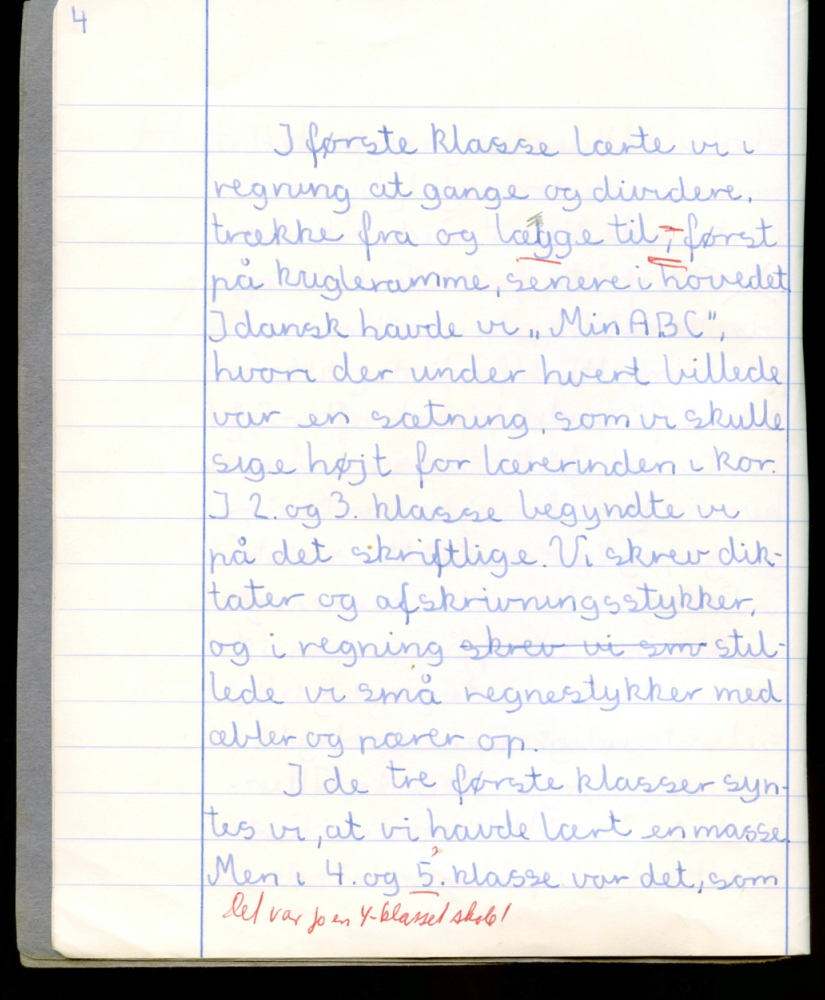 4
I første klasse lærte vi i
regning at gange og dividere,
trække fra og lægge til, først
på kugleramme, senere i hovedet.
I dansk havde vi „Min ABC",
hvori der under hvert billede
var en sætning, som vi skulle
sige højt for lærerinden i kor.
I 2. og 3. klasse begyndte vi
på det skriftlige. Vi skrev dik-
tater og afskrivningsstykker,
og i regning skrev vi sm stil-
lede vi små regnestykker med
æbler og pærer op.
I de tre første klasser syn-
tes vi, at vi havde lært en masse.
Men i 4. og 5. klasse var det, som
?
Det var jo en 4-klasset skole!